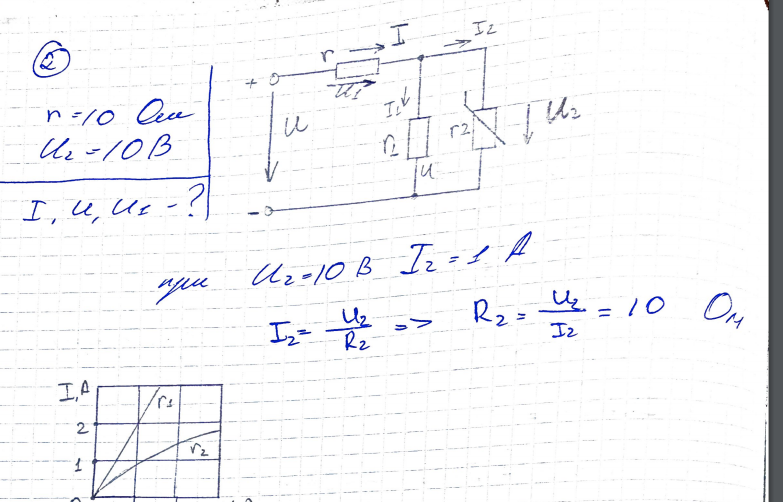 2
r=10 Ом
U₂=10 В
I, U, U₁ - ?
r I I₂
+ U₁
U I₁ r₁ r₂ U₂
U
-
при U₂=10 В I₂=1 А
I₂= U₂/R₂ => R₂= U₂/I₂ = 10 Ом
I, A
r₁
2
r₂
1
0